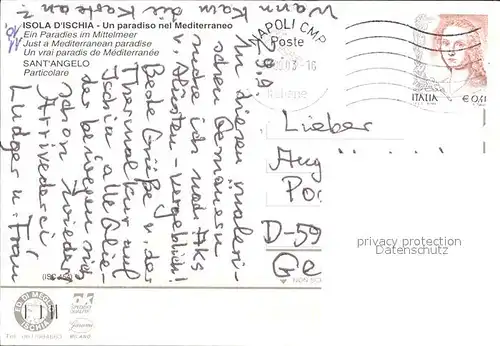 ISOLA D'ISCHIA - Un paradiso nel Mediterraneo
Ein Paradies im Mittelmeer
Just a Mediterranean paradise
Un vrai paradis de Méditerranée
SANT'ANGELO
Particolare
Wann kam die
29.9.
In diesem maleri-
schen Germanern
suche ich nach Aks
u. Abusten - vergeblich!
Beste Grüße v. der
Thermalkur auf
Ischia - alle Glie-
der bewegen sich
schon wieder
Arrivederci
Ludger u. Frau
NAPOLI CMP
Poste
ITALIA
€ 0,41
Lieber
Aug
Po
D-59
Ge
privacy protection
Datenschutz
ISCHIA
MILANO